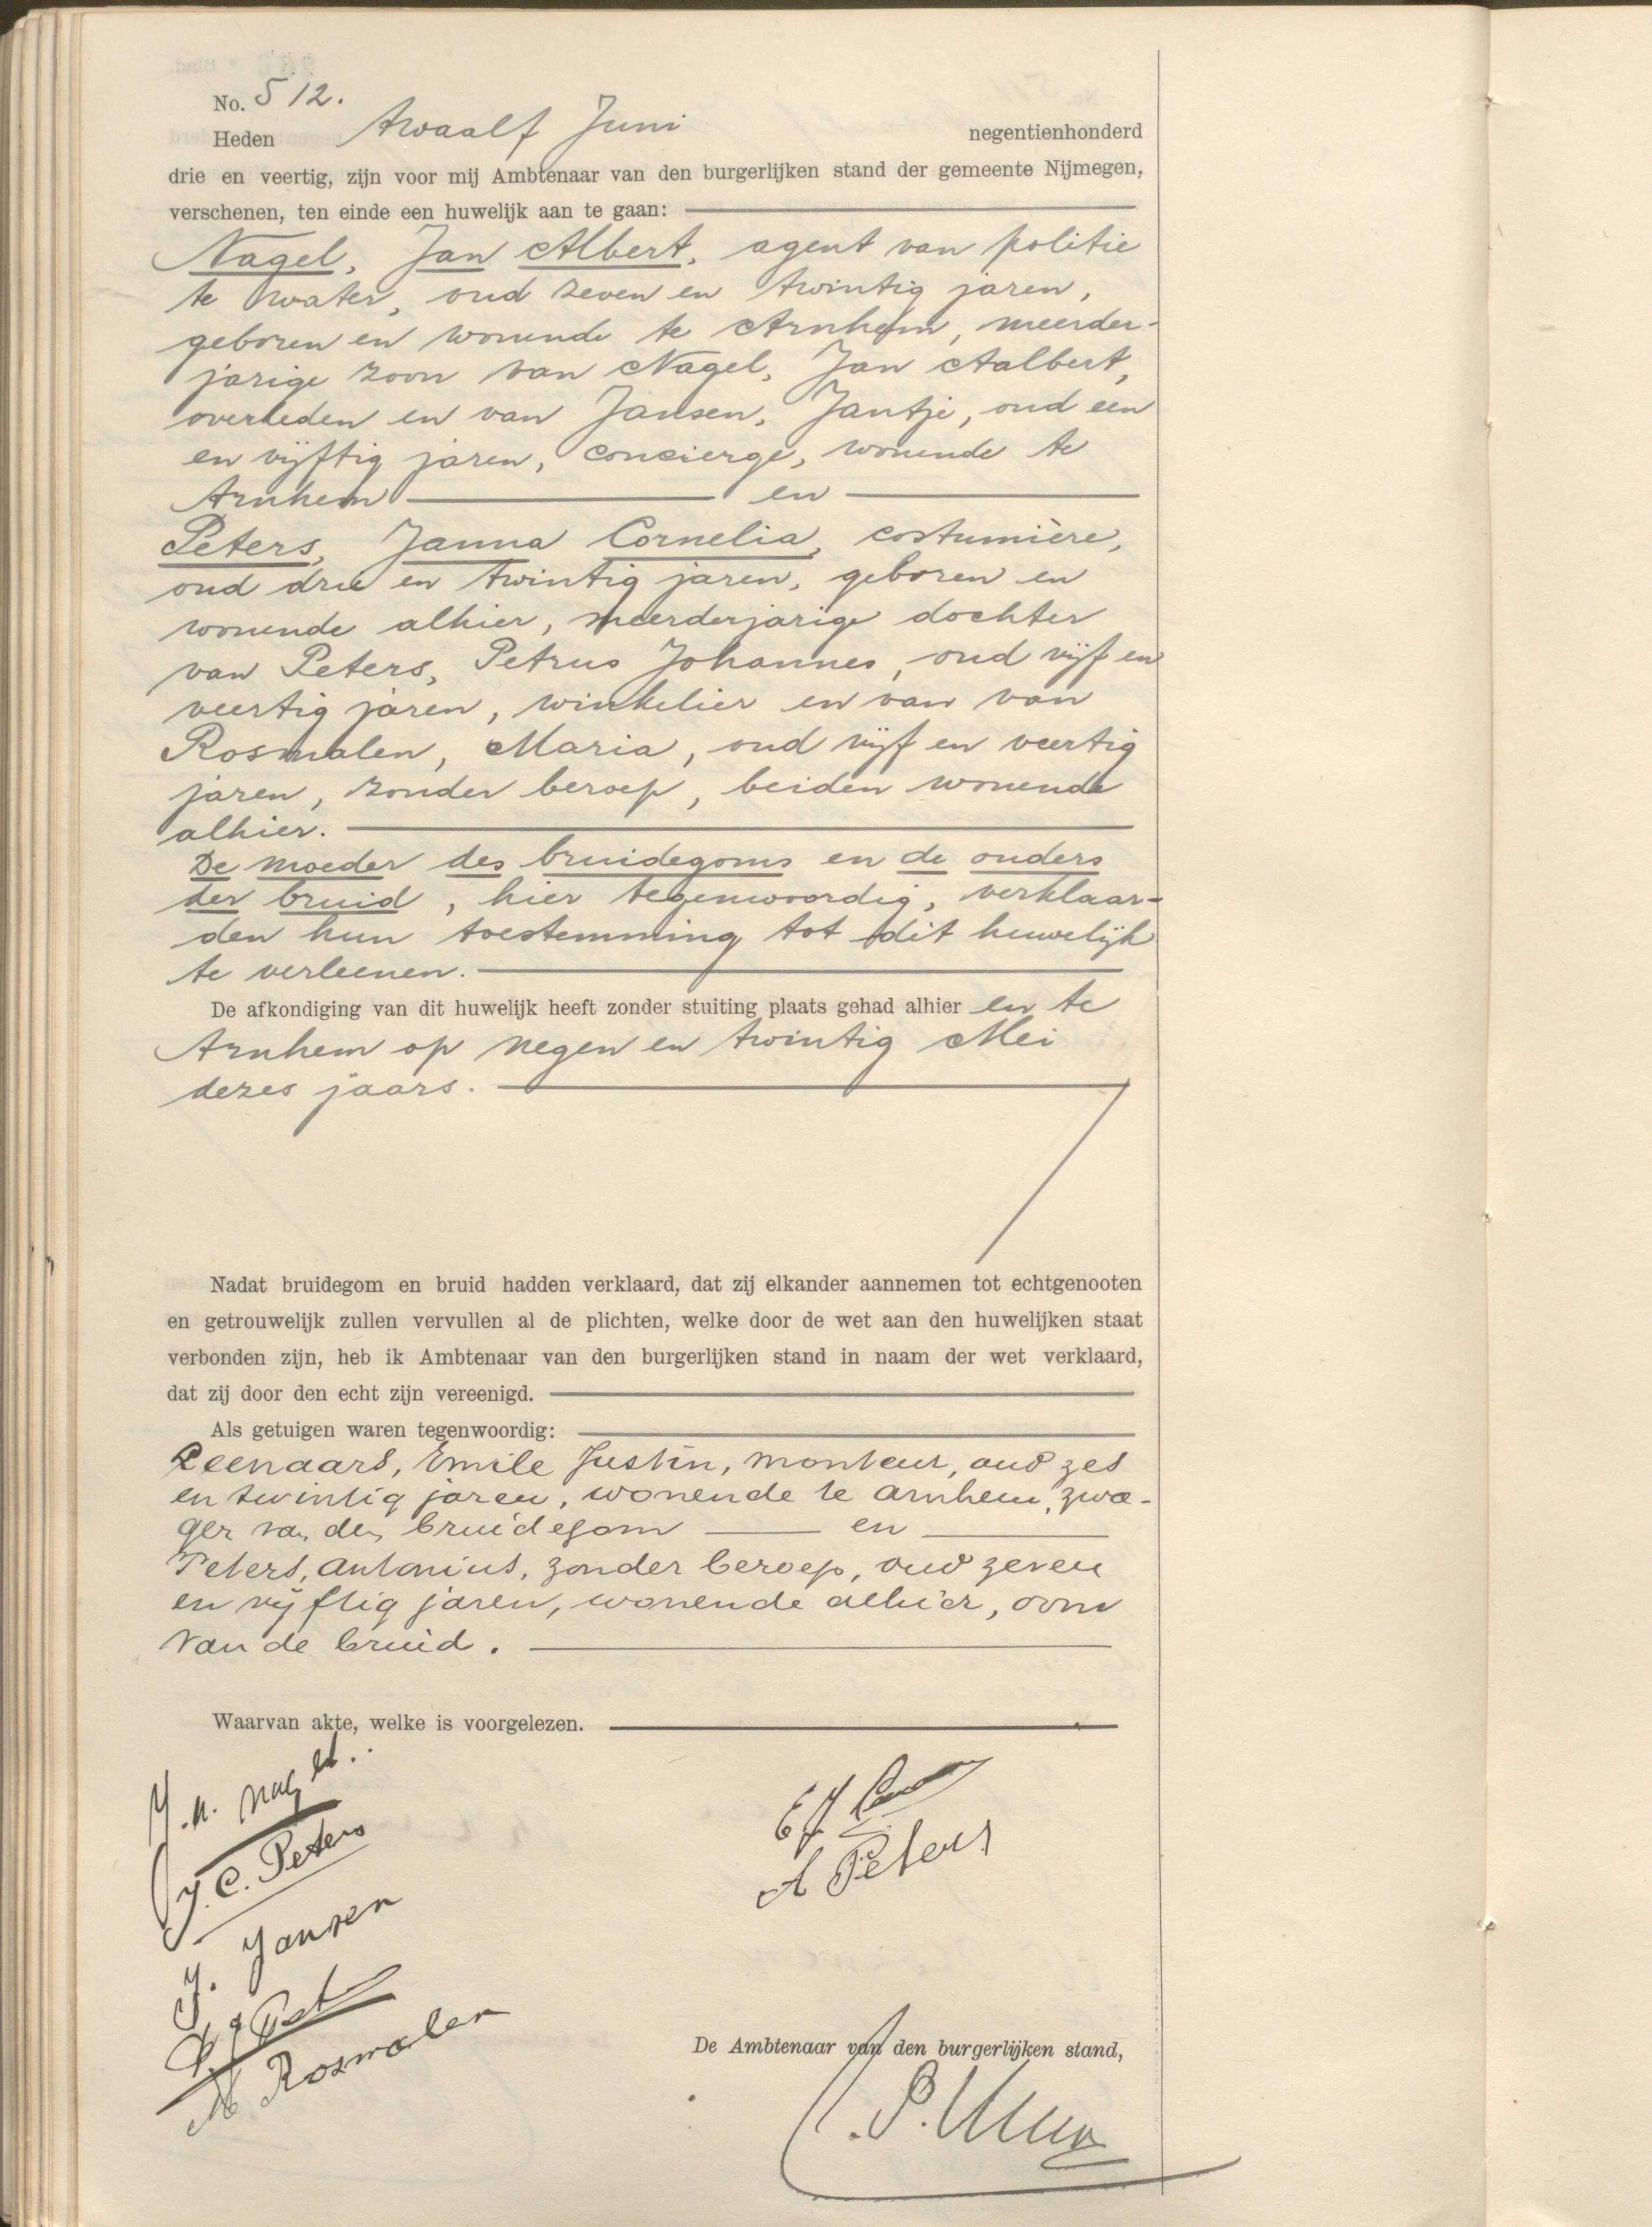 No. 512.
Heden twaalf Juni negentienhonderd
drie en veertig, zijn voor mij Ambtenaar van den burgerlijken stand der gemeente Nijmegen,
verschenen, ten einde een huwelijk aan te gaan:
Nagel, Jan Albert, agent van politie
te water, oud zeven en twintig jaren,
geboren en wonende te Arnhem, meerder-
jarige zoon van Nagel, Jan Aalbert,
overleden en van Jansen, Jantje, oud een
en vijftig jaren, concierge, wonende te
Arnhem en
Peters, Janna Cornelia, costumière,
oud drie en twintig jaren, geboren en
wonende alhier, meerderjarige dochter
van Peters, Petrus Johannes, oud vijf en
veertig jaren, winkelier en van van
Rosmalen, Maria, oud vijf en veertig
jaren, zonder beroep, beiden wonende
alhier.
De moeder des bruidegoms en de ouders
der bruid, hier tegenwoordig, verklaar-
den hun toestemming tot dit huwelijk
te verleenen.
De afkondiging van dit huwelijk heeft zonder stuiting plaats gehad alhier en te
Arnhem op negen en twintig Mei
dezes jaars.
Nadat bruidegom en bruid hadden verklaard, dat zij elkander aannemen tot echtgenooten
en getrouwelijk zullen vervullen al de plichten, welke door de wet aan den huwelijken staat
verbonden zijn, heb ik Ambtenaar van den burgerlijken stand in naam der wet verklaard,
dat zij door den echt zijn vereenigd.
Als getuigen waren tegenwoordig:
Leenaars, Emile Justin, monteur, oud zes
en twintig jaren, wonende te Arnhem, zwa-
ger van den bruidegom en
Peters, Antonius, zonder beroep, oud zeven
en vijftig jaren, wonende alhier, oom
van de bruid.
Waarvan akte, welke is voorgelezen.
J.A. Nagel.
J.C. Peters
J. Jansen
M Rosmalen
E J
A Peters
De Ambtenaar van den burgerlijken stand,